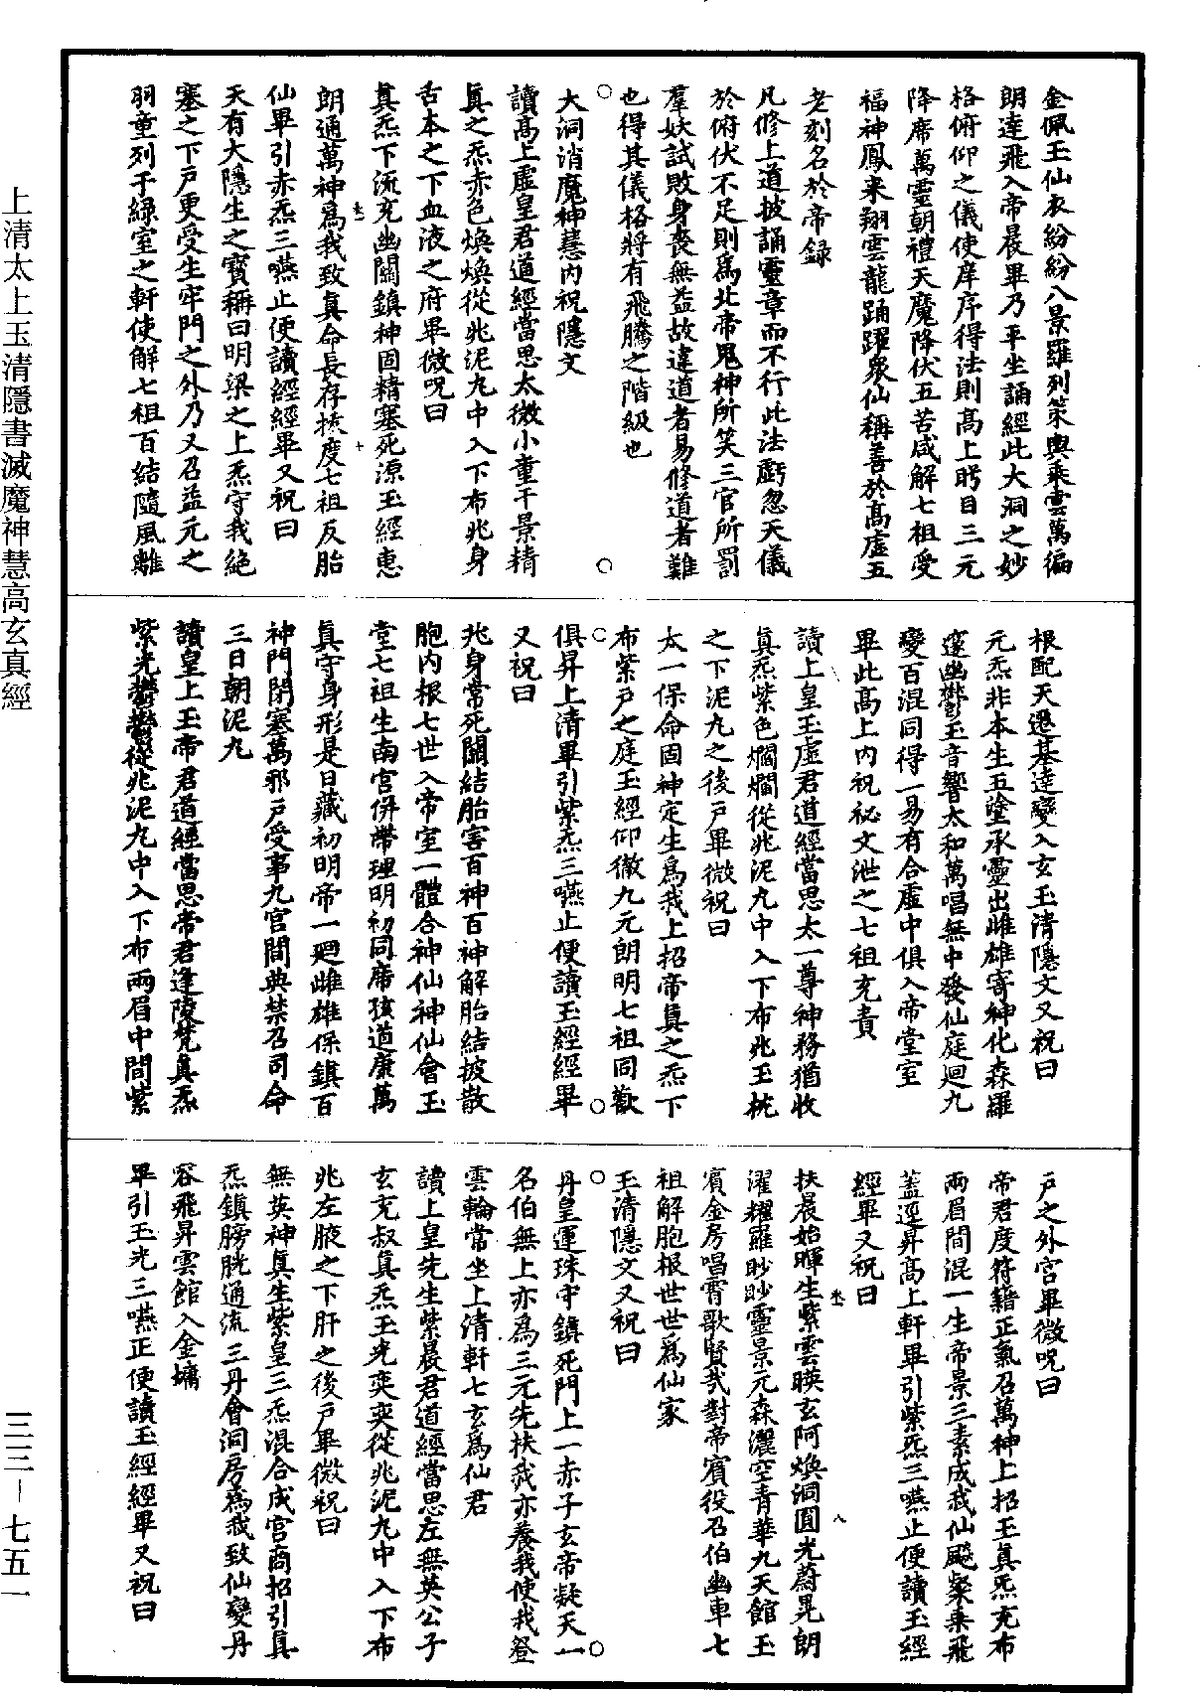 金佩玉仙衣紛紛八景羅列策輿乘雲萬徧
朗達飛入帝晨畢乃平坐誦經此大洞之妙
格俯仰之儀使庠序得法則高上眄目三元
降席萬靈朝禮天魔降伏五苦咸解七祖受
福神鳳來翔雲龍踊躍衆仙稱善於高虛五
老刻名於帝録
凡修上道披誦靈章而不行此法虧忽天儀
於俯伏不足則爲北帝鬼神所笑三官所罰
羣妖試敗身喪無益故違道者易修道者難
也得其儀格將有飛騰之階級也
大洞消魔神慧内祝隱文
讀高上虛皇君道經當思太微小童干景精
眞之炁赤色煥煥從兆泥丸中入下布兆身
舌本之下血液之府畢微呪曰
真炁下流充幽關鎮神固精塞死源玉經惠
朗通萬神爲我致真命長存拔度七祖反胎
仙畢引赤炁三嚥止便讀經經畢又祝曰
天有大隱生之寶稱曰明梁之上炁守我絶
塞之下户更受生牢門之外乃又召益元之
羽童列于緑室之軒使解七祖百結隨風離
根配天遐基達變入玄玉清隱文又祝曰
元炁非本生五塗承靈出雌雄寄神化森羅
邃幽鬱玉音響太和萬唱無中發仙庭迴九
變百混同得一易有合虛中俱入帝堂室
畢此高上内祝祕文泄之七祖充責
讀上皇玉虛君道經當思太一尊神務猶收
眞炁紫色爛爛從兆泥丸中入下布兆玉枕
之下泥丸之後户畢微祝曰
太一保命固神定生爲我上招帝眞之炁下
布紫户之庭玉經仰徹九元朗明七祖同歡
俱昇上清畢引紫炁三嚥止便讀玉經經畢
又祝曰
兆身常死關結胎害百神百神解胎結披散
胞内根七世入帝室一體合神仙神仙會玉
堂七祖生南宮併帶理明初同席孩道康萬
真守身形是日藏初明帝一迴雌雄保鎮百
神門閉塞萬邪户受事九宮間典禁召司命
三日朝泥丸
讀皇上玉帝君道經當思帝君逢陵梵眞炁
紫光鬱鬱從兆泥丸中入下布兩眉中間紫
户之外宮畢微呪曰
帝君度符籍正氣召萬神上招玉真炁充布
兩眉間混一生帝景三素成我仙飈粲乘飛
蓋逕昇高上軒畢引紫炁三嚥止便讀玉經
經畢又祝曰
扶晨始暉生紫雲暎玄阿煥洞圓光蔚晃朗
濯耀羅眇眇靈景元森灑空青華九天館玉
賓金房唱霄歌賢哉對帝賓役召伯幽車七
祖解胞根世世爲仙家
玉清隱文又祝曰
丹皇運珠守鎮死門上一赤子玄帝凝天一
名伯無上亦爲三元先扶我亦養我使我登
雲輪常坐上清軒七玄爲仙君
讀上皇先生紫晨君道經當思左無英公子
玄充叔真炁玉光奕奕從兆泥丸中入下布
兆左腋之下肝之後户畢微祝曰
無英神真生紫皇三炁混合成宮商招引真
炁鎮膀胱通流三丹會洞房爲我致仙變丹
容飛昇雲館入金墉
畢引玉光三嚥正便讀玉經經畢又祝曰
上清太上玉清隱書滅魔神慧高玄真經
三三－七五一